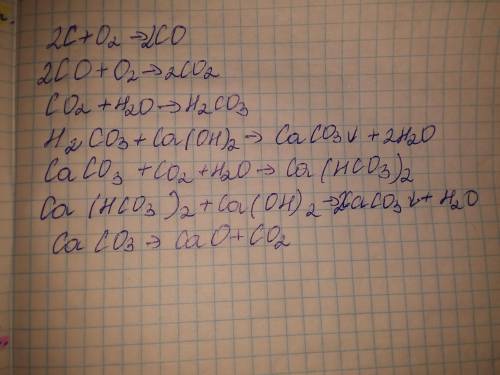 2C+O2→2CO
2CO+O2→2CO2
CO2+H2O→H2CO3
H2CO3+Ca(OH)2→CaCO3↓+2H2O
CaCO3+CO2+H2O→Ca(HCO3)2
Ca(HCO3)2+Ca(OH)2→2CaCO3↓+H2O
CaCO3→CaO+CO2